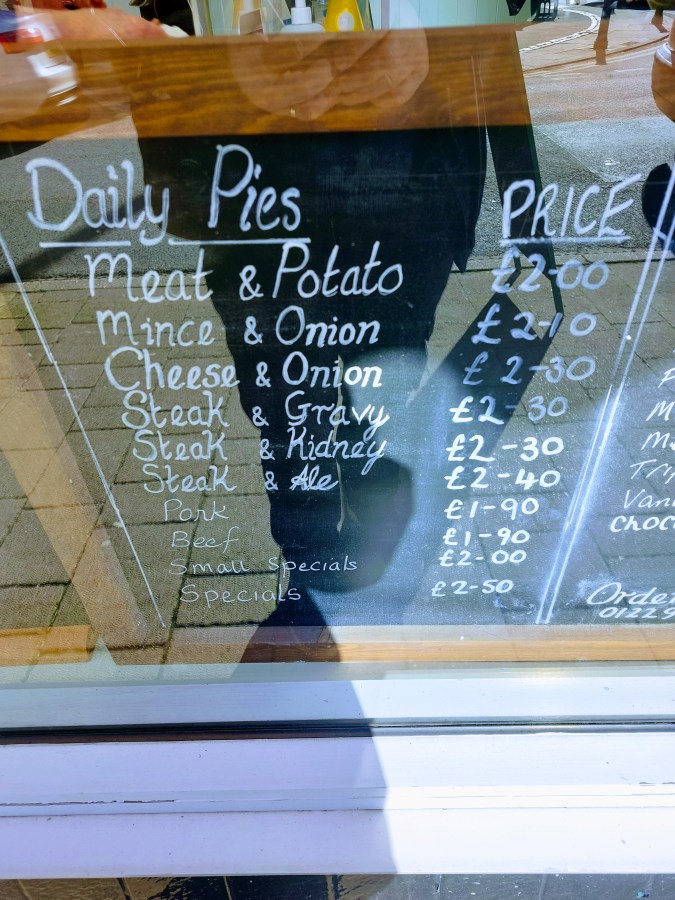 Daily Pies PRICE
Meat & Potato £2-00
Mince & Onion £2-10
Cheese & Onion £2-30
Steak & Gravy £2-30
Steak & Kidney £2-30
Steak & Ale £2-40
Pork £1-90
Beef £1-90
Small Specials £2-00
Specials £2-50